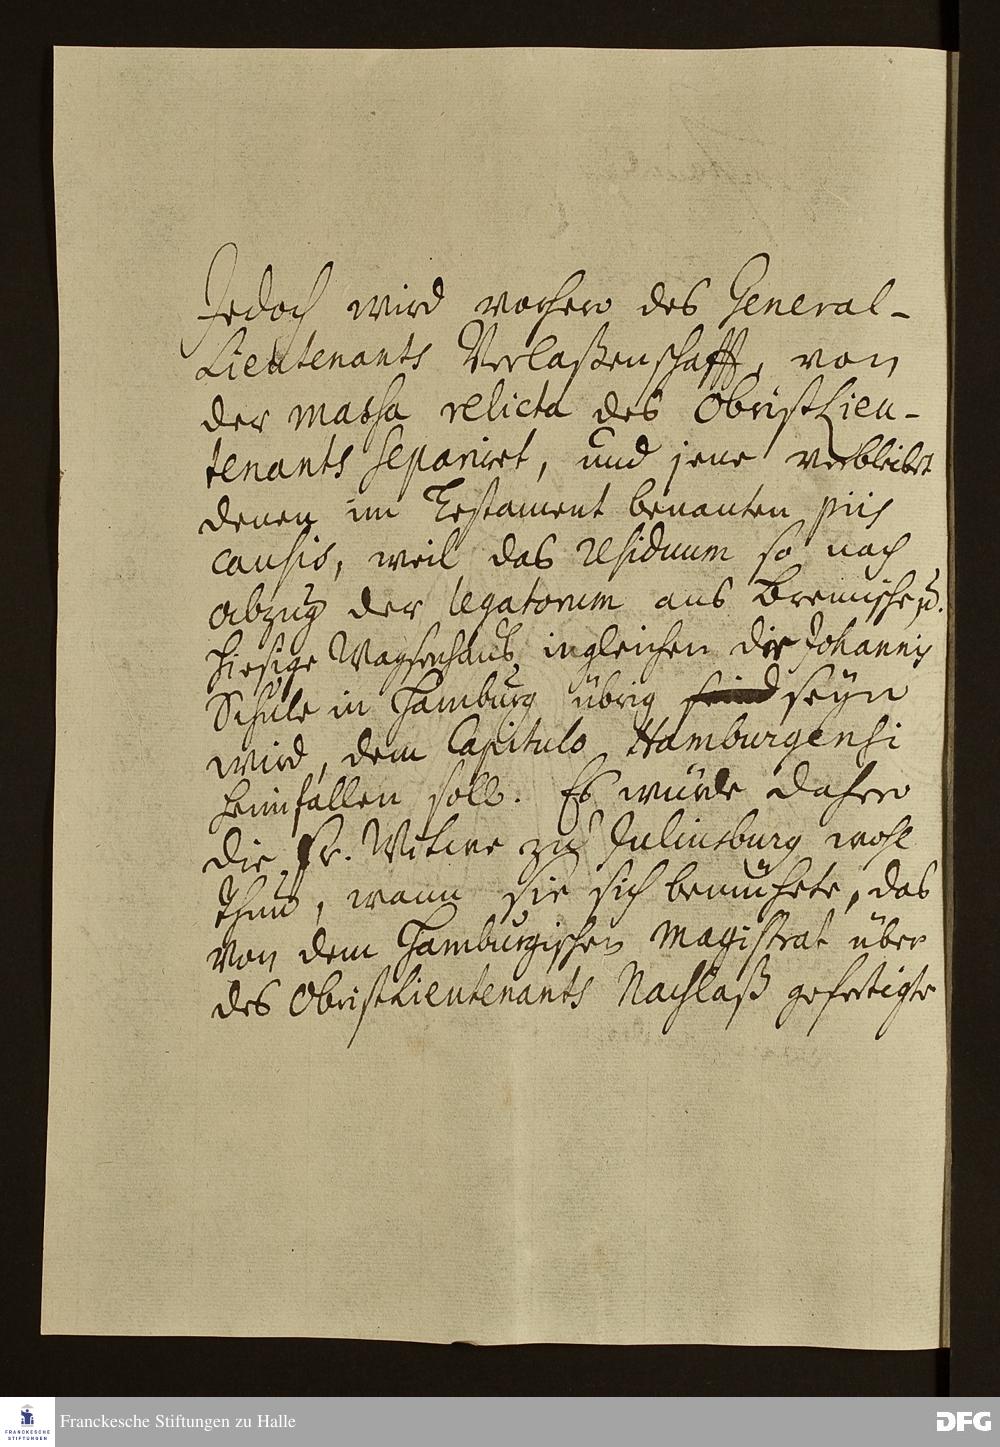 Jedoch wird vorhero des General-
Lieutenants Verlaßenschafft, von
der massa relicta des ObristLieu-
tenants separiret, und jene verbleibet
denen im Testament benanten piis
causis, weil das residuum so nach
abzug der legatorum ans Bremische u.
hiesige Waysenhaus, ingleichen die Johannis
Schule in Hamburg übrig seyn
wird, dem Capitulo Hamburgensi
heimfallen soll. Es würde dahero
die Fr. Witwe zu Juliusburg wohl
thun, wann sie sich bemühete, das
von dem Hamburgischen Magistrat über
des ObristLieutenants Nachlaß gefertigte
Franckesche Stiftungen zu Halle
FRANCKESCHE
STIFTUNGEN
DFG